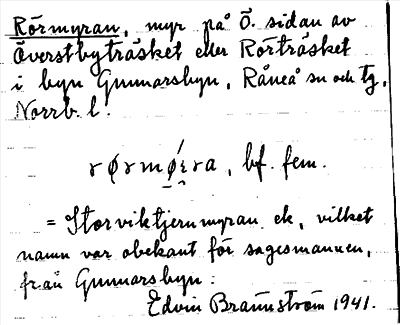 Rörmyran, myr på Ö. sidan av
Överstbyträsket eller Rörträsket
i byn Gunnarsbyn, Råneå sn och tg,
Norrb. l.
bf. fem.
= Storviktjernmyran ek, vilket
namn var obekant för sagesmannen,
från Gunnarsbyn:
Edvin Brännström 1941.